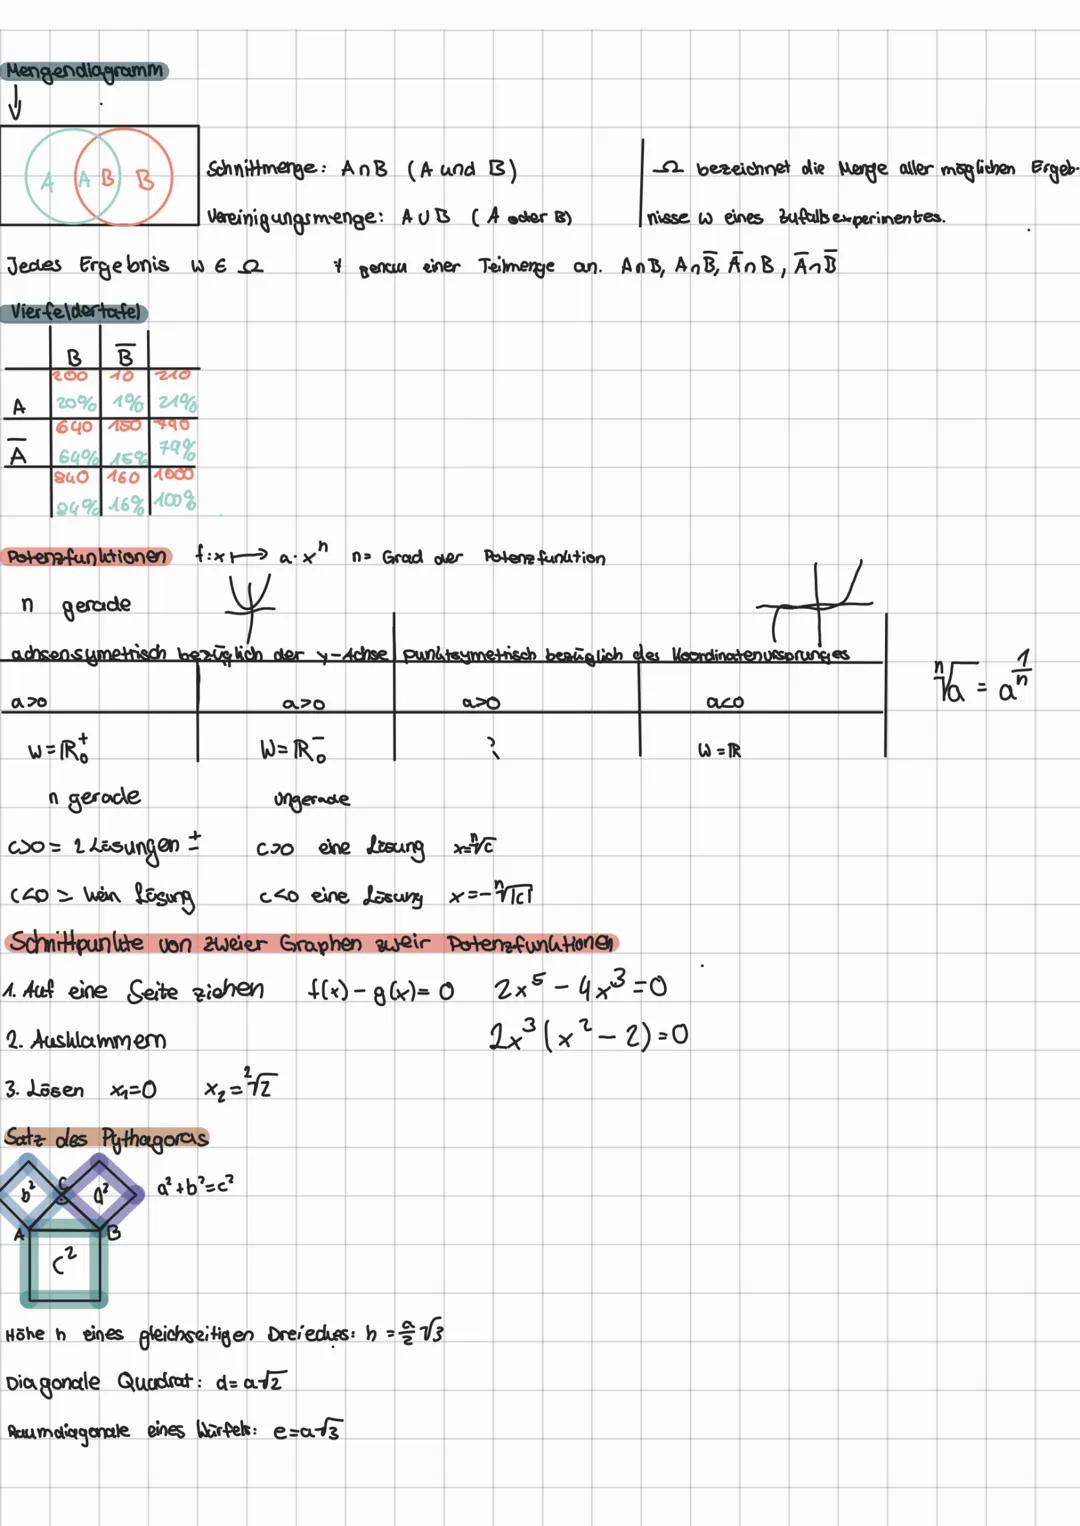 Mengendiagramm
A A B B
Schnittmenge: A∩B (A und B)
Vereinigungsmenge: A∪B (A oder B)
Ω bezeichnet die Menge aller möglichen Ergeb-
nisse ω eines Zufallsexperimentes.
Jedes Ergebnis ω ∈ Ω genau einer Teilmenge an. A∩B, A∩B̅, A̅∩B, A̅∩B̅
Vierfeldertafel
B B̅
200 10 210
A 20% 1% 21%
640 150 790
A̅ 64% 15% 79%
840 160 1000
84% 16% 100%
Potenzfunktionen f:x ↦ a·x^n n= Grad der Potenzfunktion
n gerade
achsensymetrisch bezüglich der y-Achse punktsymetrisch bezüglich des Koordinatenursprunges
a>0 a>0 a>0 a<0
W=ℝ₀⁺ W=ℝ₀⁻ ? W=ℝ
ⁿ√a = a^(1/n)
n gerade ungerade
c>0 = 2 Lösungen ± c>0 eine Lösung x=ⁿ√c
c<0 = kein Lösung c<0 eine Lösung x=-ⁿ√|c|
Schnittpunkte von zweier Graphen zweir Potenzfunktionen
1. Auf eine Seite ziehen f(x)-g(x)=0 2x⁵-4x³=0
2. Ausklammern 2x³(x²-2)=0
3. Lösen x₁=0 x₂=²√2
Satz des Pythagoras
b² C a² a²+b²=c²
A B
c²
Höhe h eines gleichseitigen Dreieckes: h = a/2 √3
Diagonale Quadrat: d=a√2
Raumdiagonale eines Würfels: e=a√3